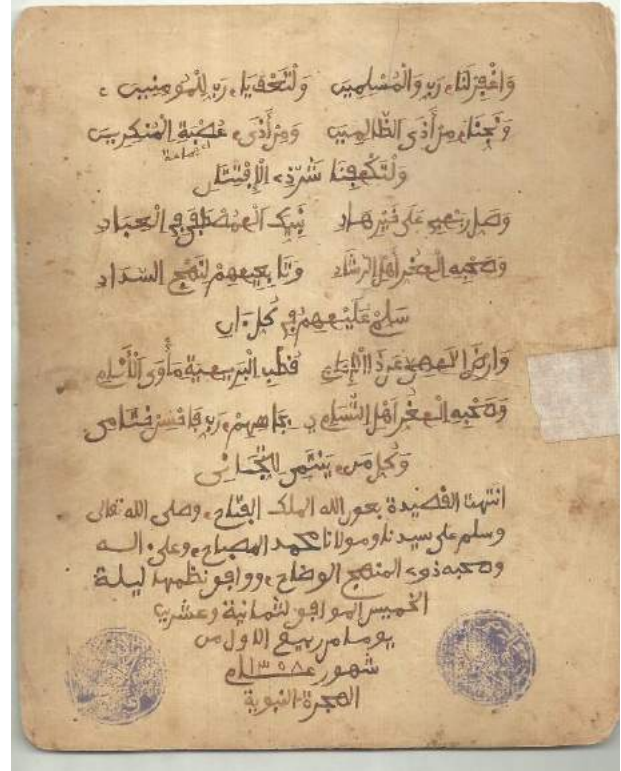 وَاغْفِرْ لَنَا رَبِّ وَالْمُسْلِمِينَ وَلْتَعْفُ يَا رَبِّ لِلْمُومِنِينَ
وَنَجِّنَا مِنْ أَذَى الظَّالِمِينَ وَمِنْ أَذَى عُصْبَةِ الْمُنْكِرِينَ
جماعة
وَلْتَكْفِنَا شَرَّ ذِي
وَصَلِّ رَبِّ عَلَى خَيْرِ هَادِ الْمُصْطَفَى فِي الْعِبَادِ
وَصَحْبِهِ الْغُرِّ أَهْلِ الرَّشَادِ وَتَابِعِيهِمْ لِنَهْجِ السَّدَادِ
سَلِّمْ عَلَيْهِمْ فِي كُلِّ آنِ
وَارْضَ عَنْ ذَا قُطْبِ الْبَرِيَّةِ مَأْوَى الْأَنَامِ
وَصَحْبِهِ الْغُرِّ أَهْلِ رَبِّ
وَكُلِّ مَنْ يَنْتَمِي لِلتِّجَانِي
انتهت القصيدة بعون الله الملك الفتاح وصلى الله تعالى
وسلم على سيدنا ومولانا محمد المصباح وعلى اله
وصحبه ذوي المنهج الوضاح ووافق نظمها ليلة
الخميس الموافق لثمانية وعشرين
يوما من ربيع الاول من
شهور عام ١٣٥٨
الهجرة النبوية